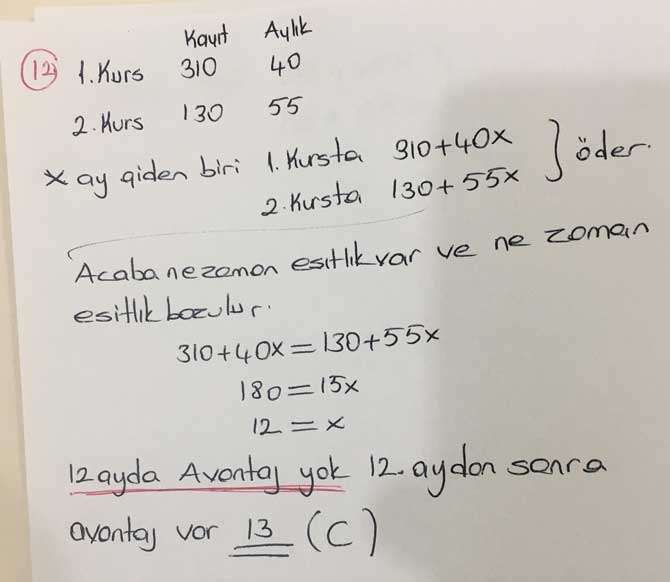 Kayıt Aylık
12) 1. Kurs 310 40
2. Kurs 130 55
x ay giden biri 1. Kursta 310+40x } öder.
2. Kursta 130+55x
Acaba ne zaman esitlik var ve ne zaman
esitlik bozulur.
310+40x=130+55x
180=15x
12=x
12 ayda Avantaj yok 12. aydan sonra
avantaj var 13 (C)